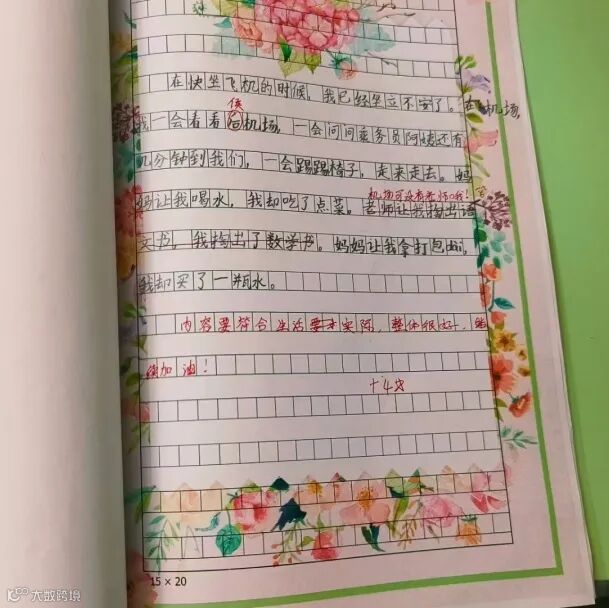 在快坐飞机的时候，我已经坐立不安了。在机场，
候
我一会看看后机场，一会问问乘务员阿姨还有
几分钟到我们，一会踢踢椅子，走来走去。妈
机场可没有老师哦！
妈让我喝水，我却吃了点菜。老师让我掏出语
文书，我掏出了数学书。妈妈让我拿打包dài，
我却买了一瓶水。
内容要符合生活要求实际，整体很好，继
续加油！
+4分
15×20
大数跨境